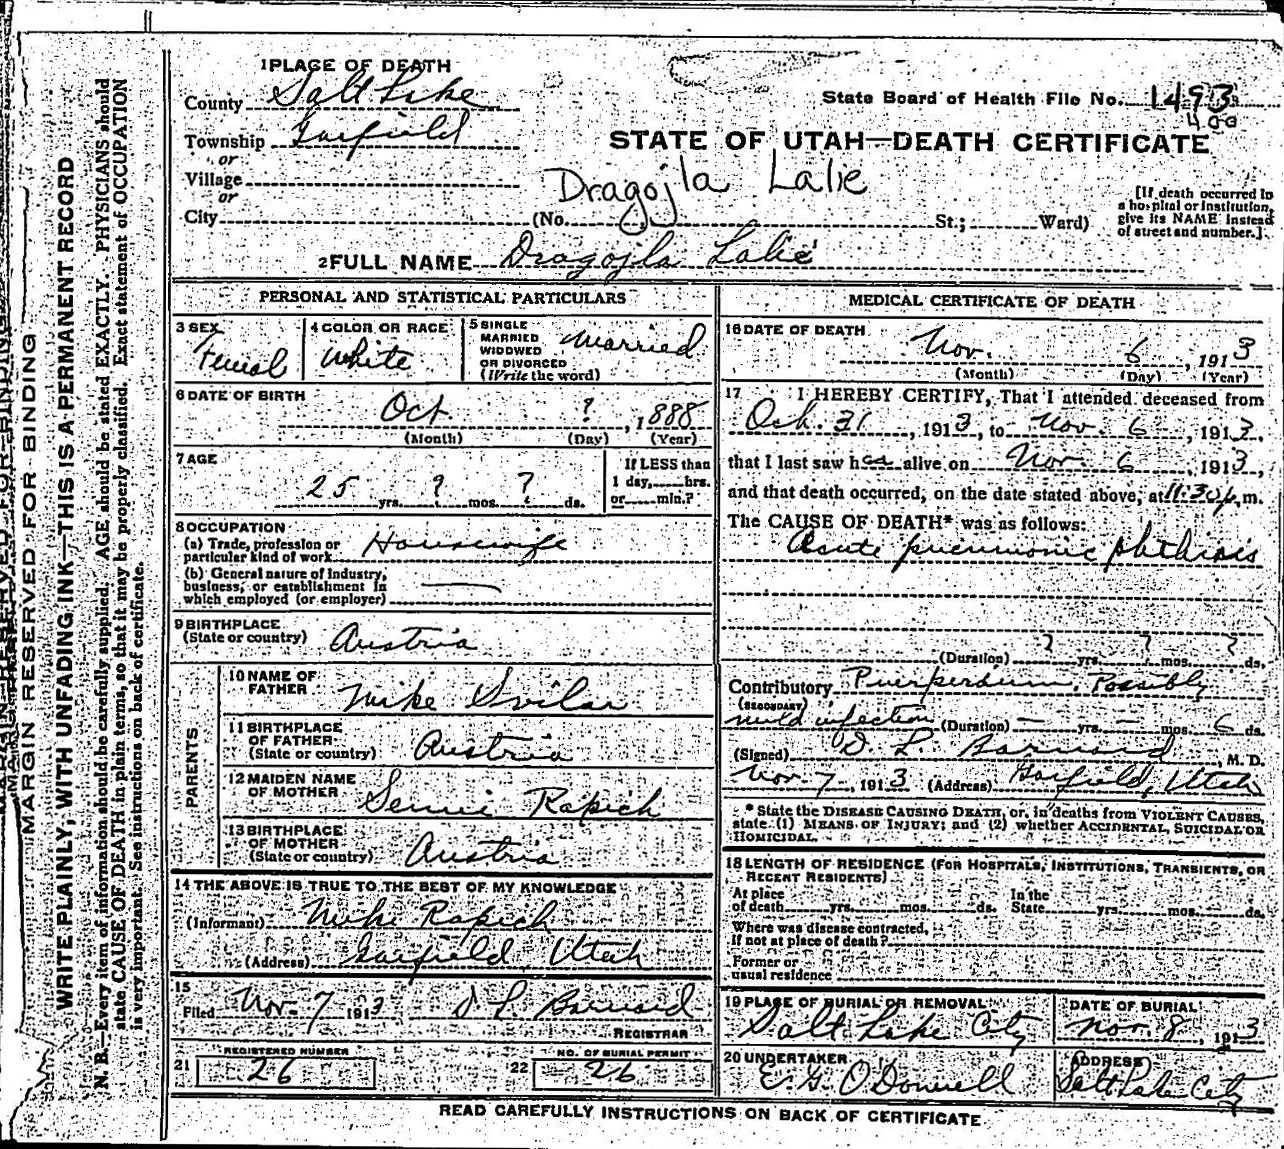 1 PLACE OF DEATH
County Salt Lake
Township Garfield
or
Village
or
City (No. St.; Ward)
State Board of Health File No. 1493
400
STATE OF UTAH—DEATH CERTIFICATE
Dragojla Lalie
[If death occurred in
a hospital or institution,
give its NAME instead
of street and number.]
2 FULL NAME Dragojla Lalié
MARGIN RESERVED FOR BINDING
WRITE PLAINLY, WITH UNFADING INK—THIS IS A PERMANENT RECORD
N. B.—Every item of information should be carefully supplied. AGE should be stated EXACTLY. PHYSICIANS should
state CAUSE OF DEATH in plain terms, so that it may be properly classified. Exact statement of OCCUPATION
is very important. See instructions on back of certificate.
PERSONAL AND STATISTICAL PARTICULARS
3 SEX
Femal
4 COLOR OR RACE
White
5 SINGLE
MARRIED
WIDOWED
OR DIVORCED
(Write the word)
Married
6 DATE OF BIRTH
Oct ? , 1888
(Month) (Day) (Year)
7 AGE
25 yrs. ? mos. ? ds.
If LESS than
1 day, hrs.
or min.?
8 OCCUPATION
(a) Trade, profession or
particular kind of work Housewife
(b) General nature of industry,
business, or establishment in
which employed (or employer) —
9 BIRTHPLACE
(State or country) Austria
PARENTS
10 NAME OF
FATHER Mike Svilar
11 BIRTHPLACE
OF FATHER
(State or country) Austria
12 MAIDEN NAME
OF MOTHER Rapich
13 BIRTHPLACE
OF MOTHER
(State or country) Austria
14 THE ABOVE IS TRUE TO THE BEST OF MY KNOWLEDGE
(Informant) Mike Rapich
(Address) Garfield, Utah
15
Filed Nov. 7 1913 D L Barnard
REGISTRAR
21 REGISTERED NUMBER
26
22 NO. OF BURIAL PERMIT
26
MEDICAL CERTIFICATE OF DEATH
16 DATE OF DEATH
Nov. 6 , 1913
(Month) (Day) (Year)
17 I HEREBY CERTIFY, That I attended deceased from
Och. 31 , 1913, to Nov. 6 , 1913,
that I last saw h er alive on Nov. 6 , 1913
and that death occurred, on the date stated above, at 11:30 p.m.
The CAUSE OF DEATH* was as follows:
Acute pneumonic phthisis
(Duration) ? yrs. ? mos. ? ds.
Contributory Puerperium. Possibly
(SECONDARY)
mild infection (Duration) — yrs. — mos. 6 ds.
(Signed) D. L. Barnard , M. D.
Nov. 7 , 1913 (Address) Garfield, Utah
* State the DISEASE CAUSING DEATH, or, in deaths from VIOLENT CAUSES,
state (1) MEANS OF INJURY; and (2) whether ACCIDENTAL, SUICIDAL OR
HOMICIDAL.
18 LENGTH OF RESIDENCE (FOR HOSPITALS, INSTITUTIONS, TRANSIENTS, OR
RECENT RESIDENTS)
At place
of death yrs. mos. ds.
In the
State yrs. mos. ds.
Where was disease contracted,
if not at place of death?
Former or
usual residence
19 PLACE OF BURIAL OR REMOVAL
Salt Lake City
DATE OF BURIAL
Nov. 8 , 1913
20 UNDERTAKER
E. G. O'Donnell
ADDRESS
Salt Lake City
READ CAREFULLY INSTRUCTIONS ON BACK OF CERTIFICATE